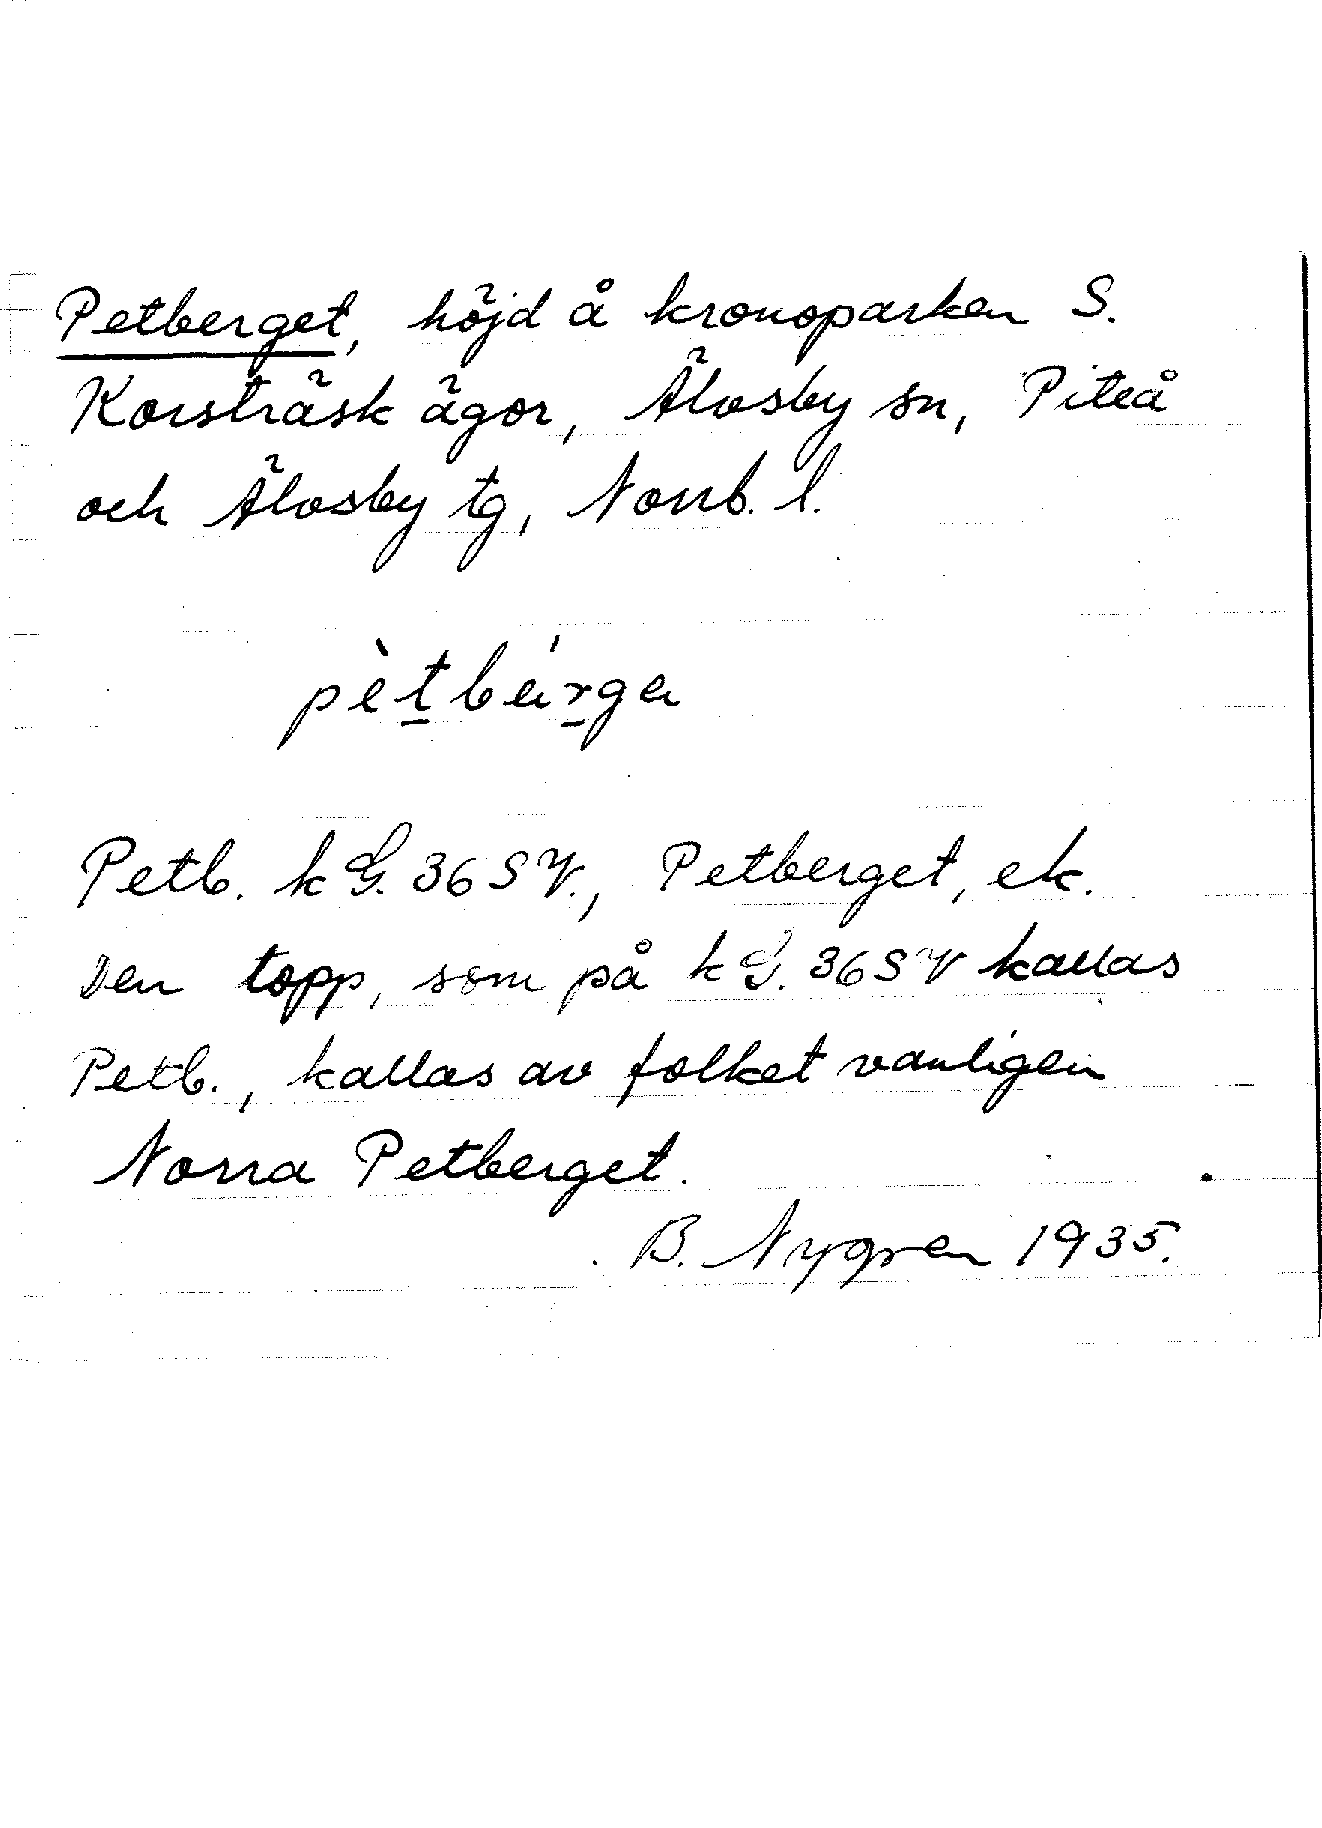 Petberget, höjd å kronoparken S.
Korsträsk ägor, Älvsby sn, Piteå
och Älvsby tg, Norrb. l.
pètbä́rga
Petb. k G. 36 SV., Petberget, ek.
Den topp, som på k G. 36 SV kallas
Petb., kallas av folket vanligen
Norra Petberget.
B. Nygren 1935.